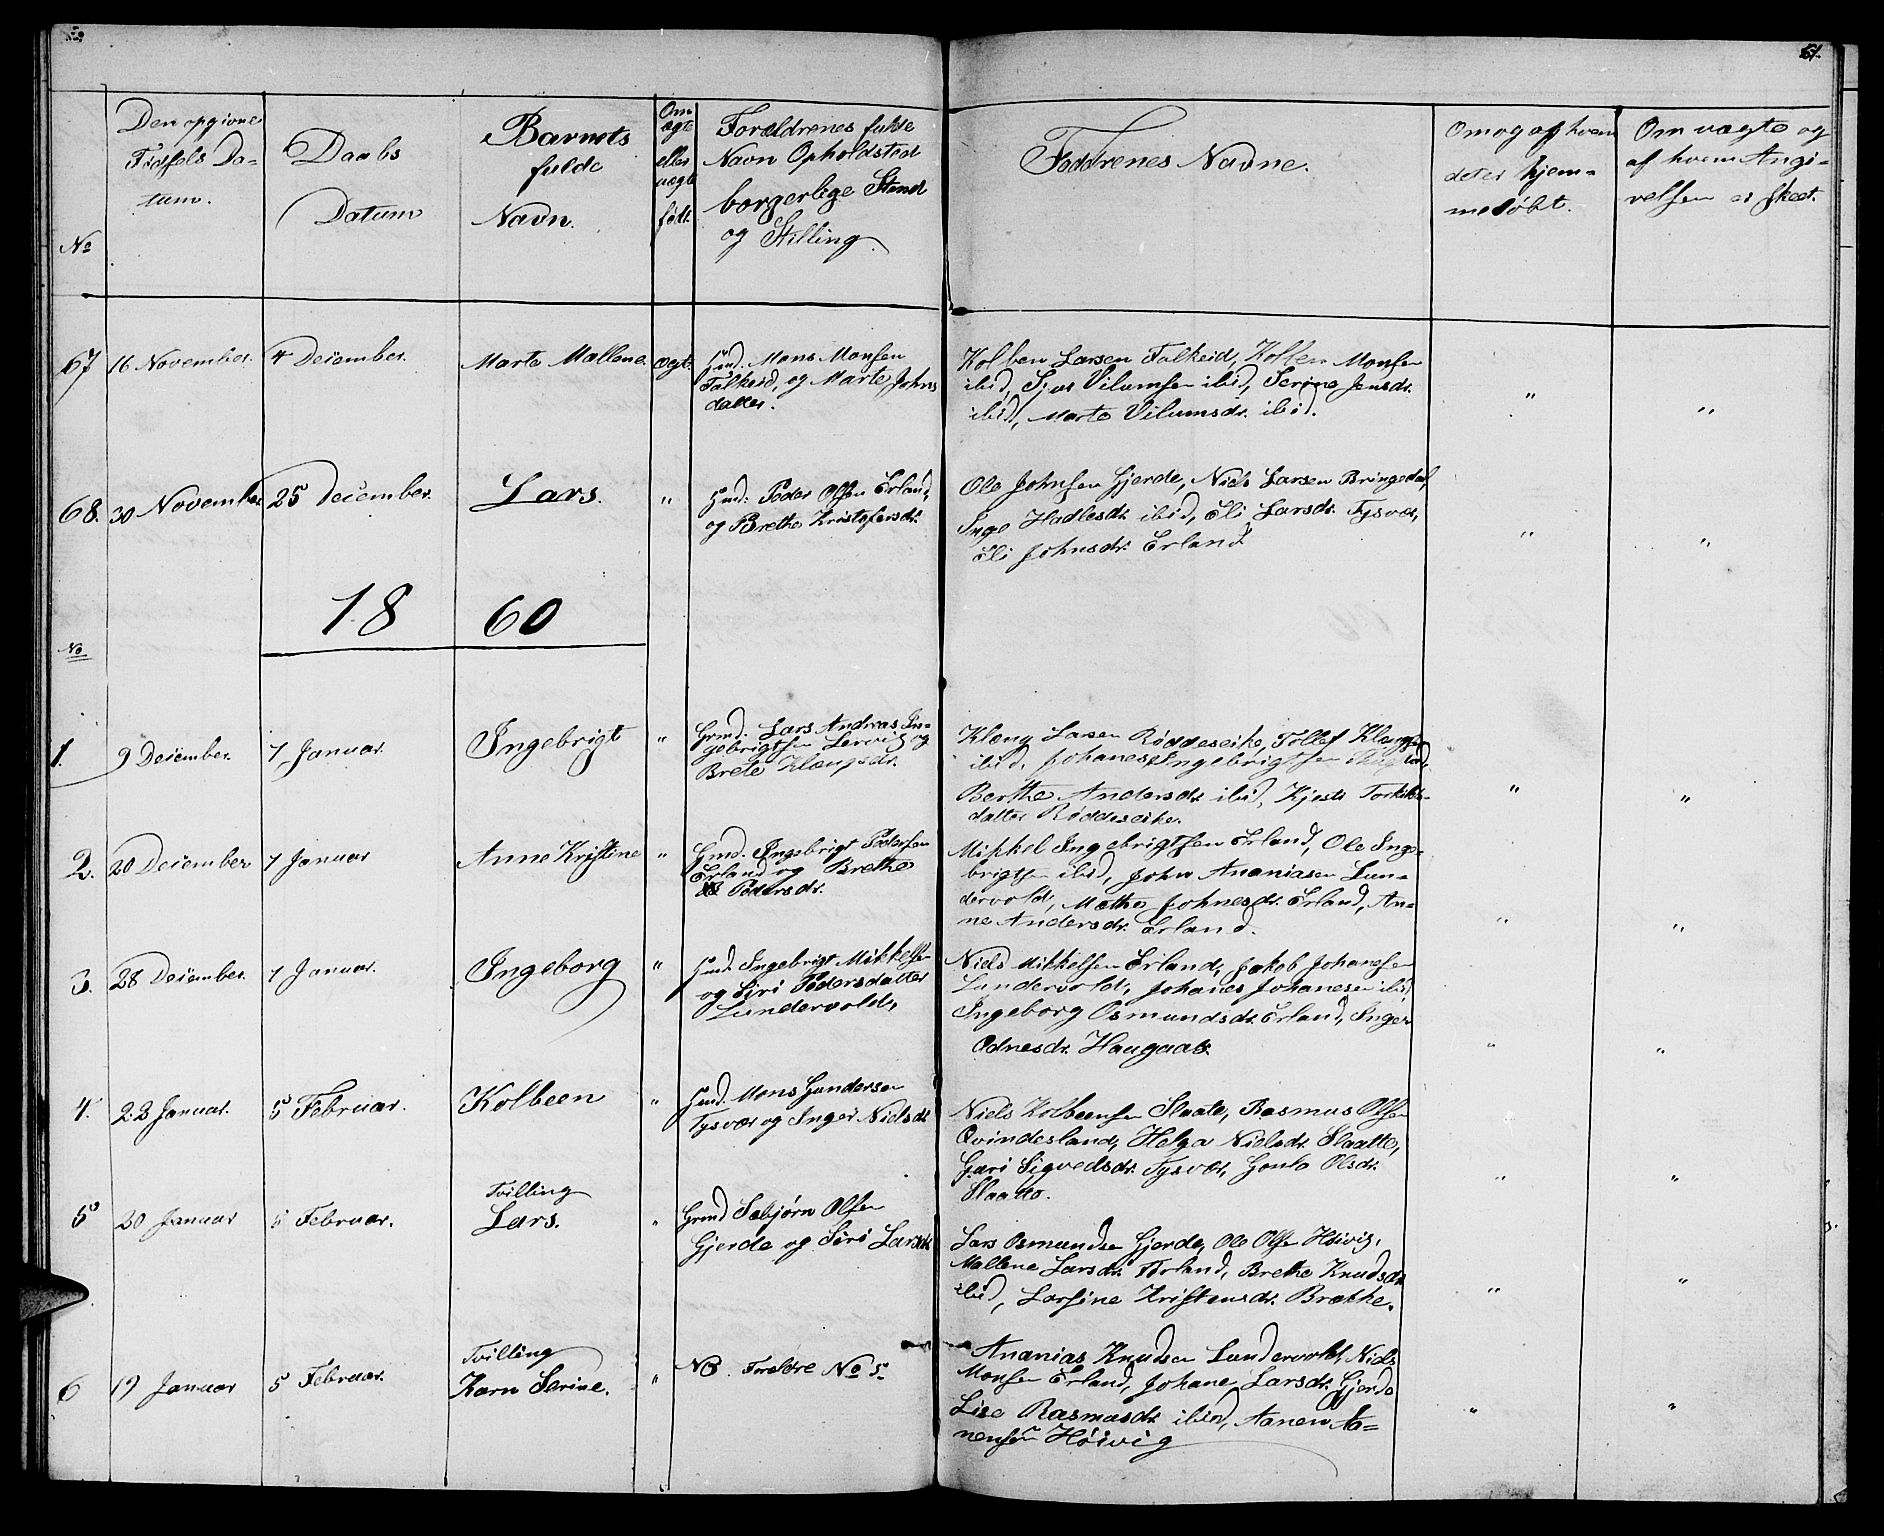 51.
No
Den opgivne
Fødsels Da-
tum.
Daabs
Datum
Barnets
fulde
Navn.
Om
ægte
eller
uægte
født.
Forældrenes fulde
Navn Opholdsted
borgerlige Stand
og Stilling.
Faddrenes Navne.
Om og af hvem
det er hjem-
medøbt.
Om vægte og
af hvem Angi-
velsen er skeet.
67
16 November.
4 Deiember.
Marte Mallene.
Ægt.
Gmd. Mons Monsen
Falkeid, og Marte Johns
datter.
Kolben Larsen Falkeid, Kolben Monsen
ibid, Sjur Vilumsen ibid, Serine Jensdr.
ibid, Marte Vilumsdr. ibid.
"
"
68.
30 November
25 Deiember.
Lars.
"
Gmd: Peder Olsen Erland,
og Brethe Kristofersdr.
Ole Johnsen Gjerde, Niels Larsen Bringedal,
Inge Hadlesdr. ibid, Eli Larsdr. Tysvær,
Eli Johnsdr. Erland
"
"
18 60
No
1.
9 Deiember.
7 Januar.
Ingebrigt
"
Grmd. Lars Andreas In-
gebrigtsen Lervig og
Brete Klængsdr.
Klæng Lassen Røddeseike, Tollef Klængsen
ibid, Johanes Ingebrigtsen
Berthe Andersdr. ibid, Kjesti Torkils-
datter Røddeseike.
"
"
2.
20 Deiember
7 Januar
Anne Kristine
"
Gmd. Ingebrigt Pedersen
Erland og Brethe
Pedersdr.
Mikkel Ingebrigtsen Erland, Ole Inge-
brigtsen ibid, John Ananiasen Lun-
dervold, Mathe Johnesdr. Erland, An-
ne Andersdr. Erland.
"
"
3.
28 Deiember.
7 Januar.
Ingeborg
"
Gmd. Ingebrigt Mikkelsen
og Siri Pedersdatter
Lundervold,
Niels Mikkelsen Erland, Jakob Johansen
Lundervold, Johanes Johanesen ibid,
Ingeborg Osmundsdr. Erland, Inger
Odnesdr. Haugaas.
"
"
4.
22 Januar.
5 Februar.
Kolbeen
"
Gmd. Mons Gundersen
Tysvær og Inger Nielsdr.
Niels Kolbeensen Slaate, Rasmus Olsen
Qvindesland, Helga Nielsdr. Slaatte,
Guri Sigvedsdr. Tysvær, Gonla Olsdr.
Slaatto.
"
"
5
20 Januar
5 Februar.
Tvilling
Lars.
"
Grmd Sæbjørn Olsen
Gjerde og Siri Larsdr.
Lars Osmundsen Gjerde, Ole Olsen Høivig,
Mallene Larsdr. Førland, Brethe Knudsdr.
ibid, Larsine Kristensdr. Brække.
"
"
6
19 Januar
5 Februar.
Tvilling
Karn Serine.
"
NB. Foreldre No 5.
Ananias Knudsen Lundervold, Niels
Monsen Erland, Johane Larsdr. Gjerde
Lise Rasmusdr. ibid, Aanen Aa-
nensen Høivig
"
"